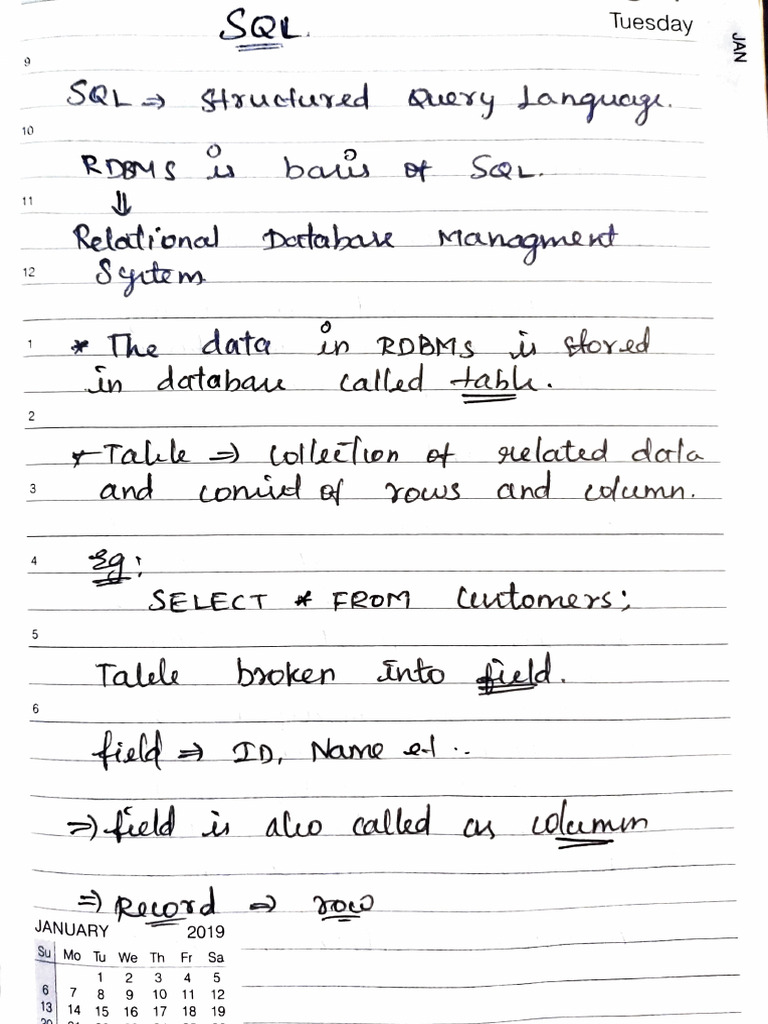 SQL.
Tuesday
JAN
9
SQL ⇒ Structured Query Language.
10
RDBMS is basis of SQL.
11
⇓
Relational Database Managment
12
System
1
* The data in RDBMS is stored
in database called table.
2
* Table ⇒ collection of related data
3
and consist of rows and column.
4
Eg:
SELECT * FROM Customers;
5
Table broken into field.
6
field ⇒ ID, Name et ..
⇒ field is also called as column
⇒ Record ⇒ row
JANUARY 2019
Su Mo Tu We Th Fr Sa
1 2 3 4 5
6 7 8 9 10 11 12
13 14 15 16 17 18 19